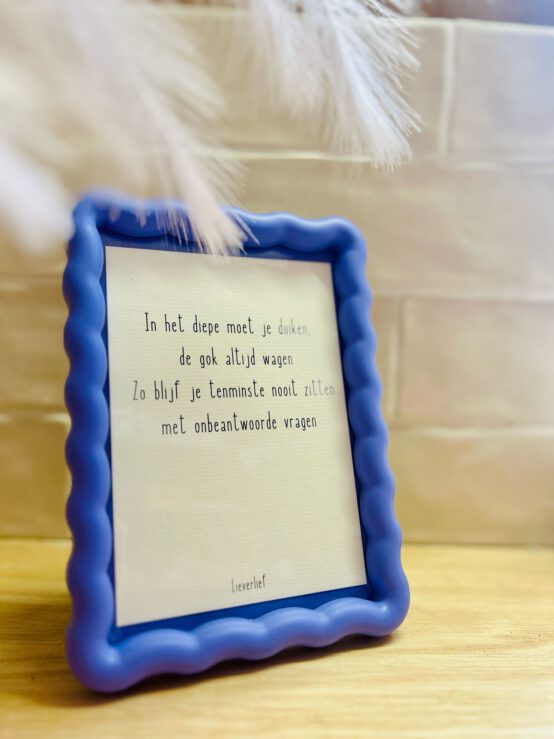 In het diepe moet je duiken,
de gok altijd wagen
Zo blijf je tenminste nooit zitten
met onbeantwoorde vragen
Lieverlief